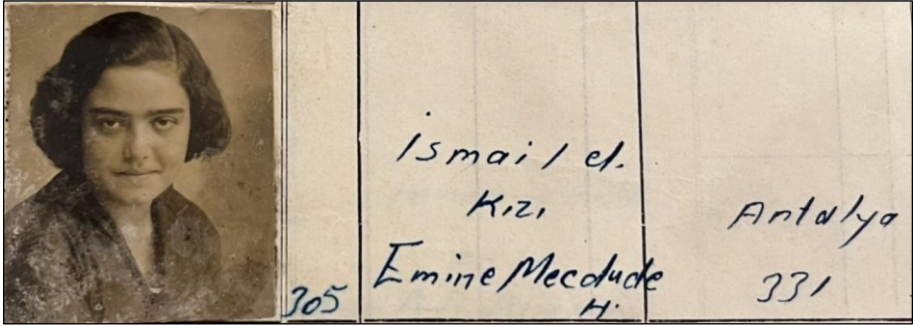 İsmail ef.
Kızı
Emine Mecdude
H.
305
Antalya
331